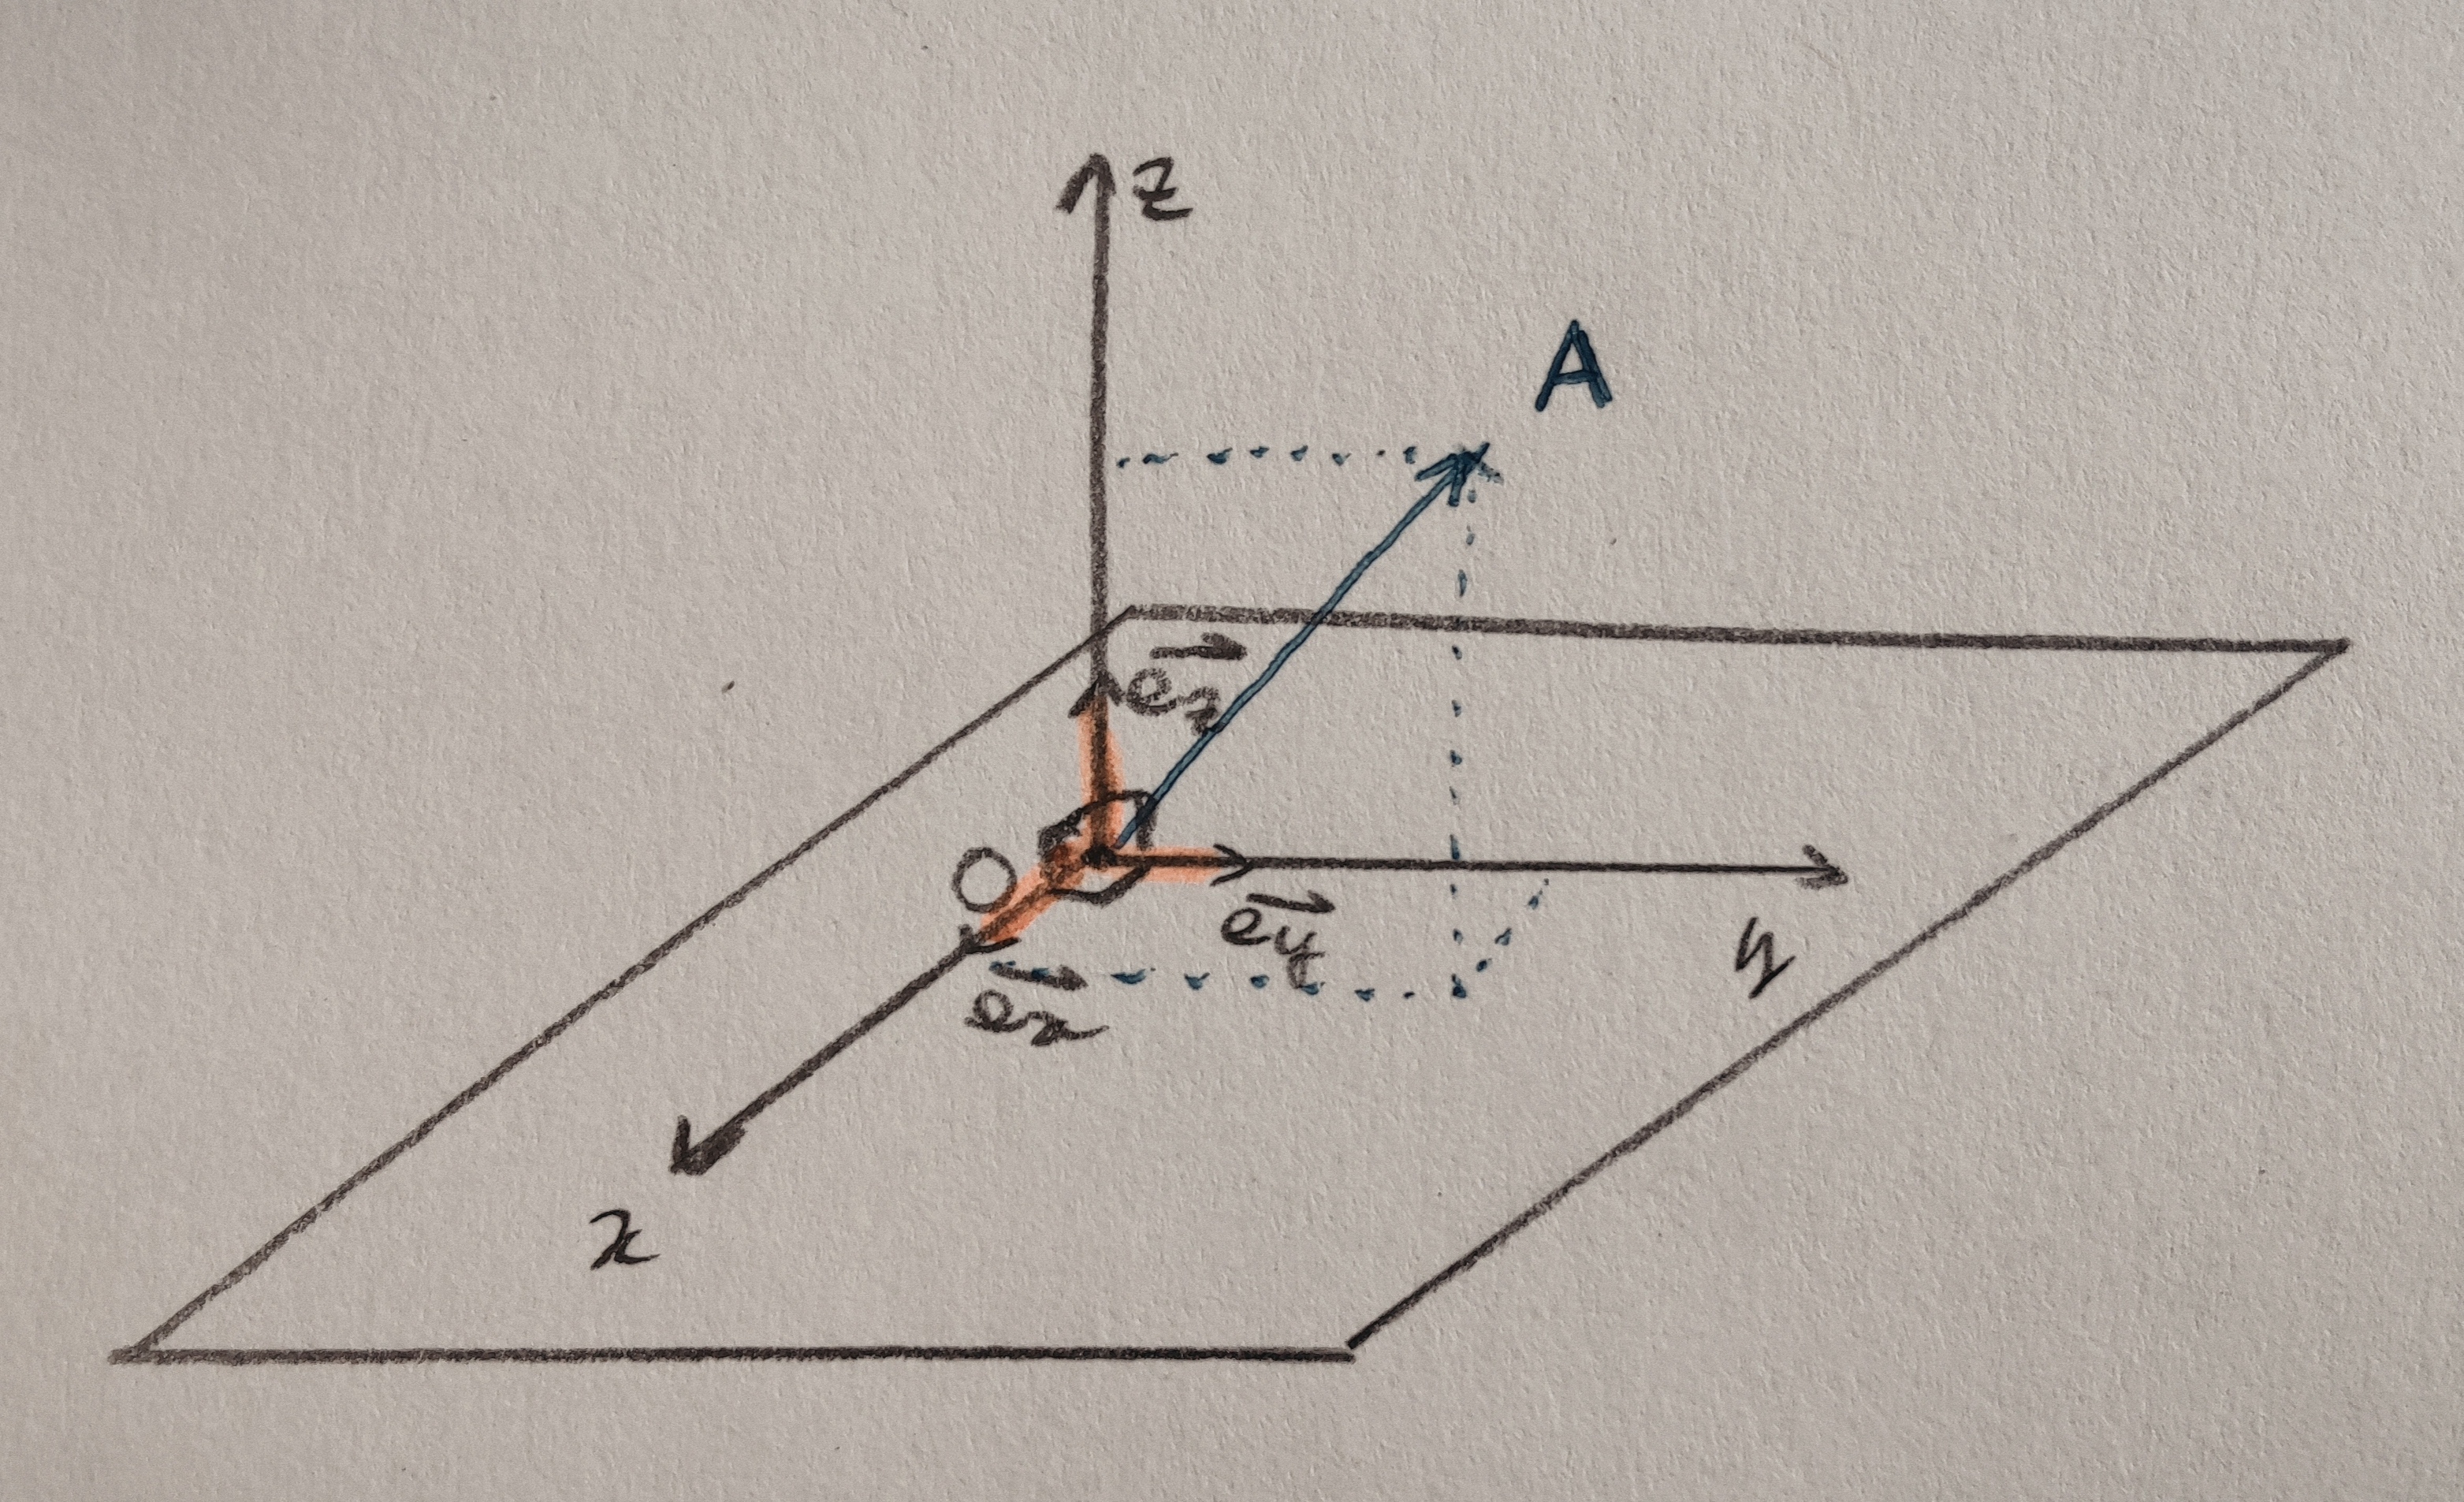 z
A
e⃗z
O
e⃗y
e⃗x
y
x